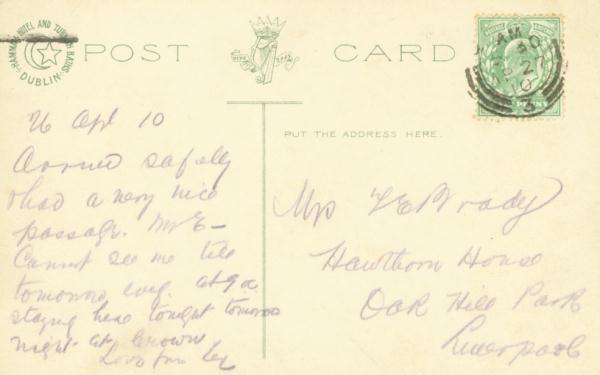 HAMMAM HOTEL AND TURKISH BATHS
DUBLIN
POST CARD
AM 30
27
10
PUT THE ADDRESS HERE.
26 Apl 10
Arrived safely
& had a very nice
passage. Mr E—
Cannot see me till
tomorrow evg. at 9 a
staying here tonight tomorrow
night at Crown
Love from
Mrs F E Brady
Hawthorn House
Oak Hill Park
Liverpool